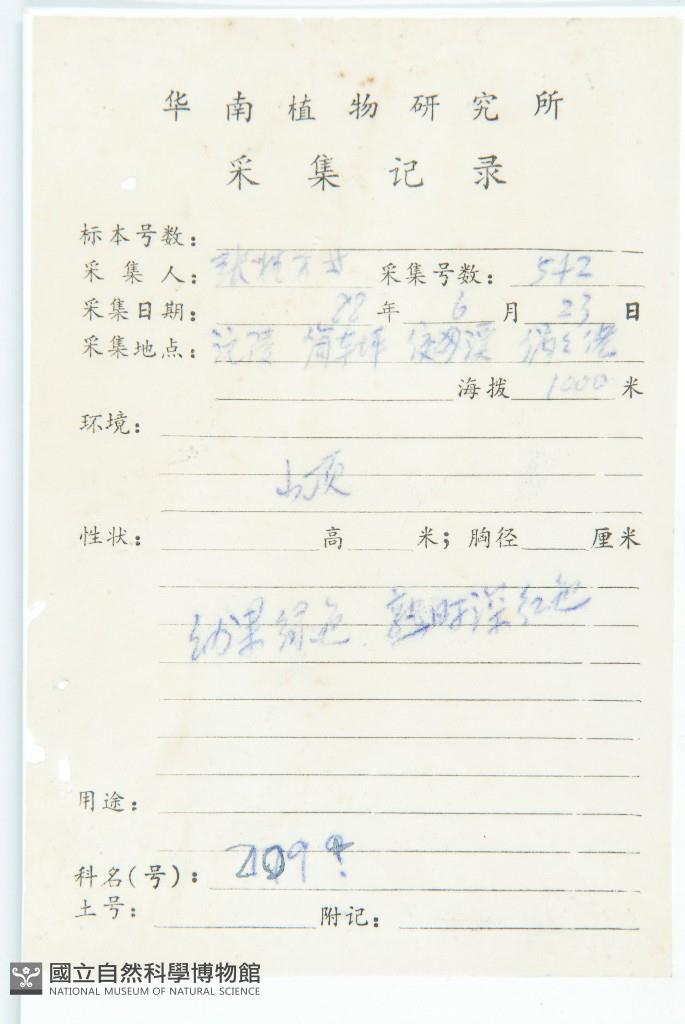 华南植物研究所
采集记录
标本号数：
采集人： 采集号数： 542
采集日期： 88 年 6 月 23 日
采集地点： 沅陵
海拨 1000 米
环境：
山顶
性状： 高 米；胸径 厘米
幼果绿色、熟时深红色
用途：
科名(号)：
土号： 附记：
國立自然科學博物館
NATIONAL MUSEUM OF NATURAL SCIENCE